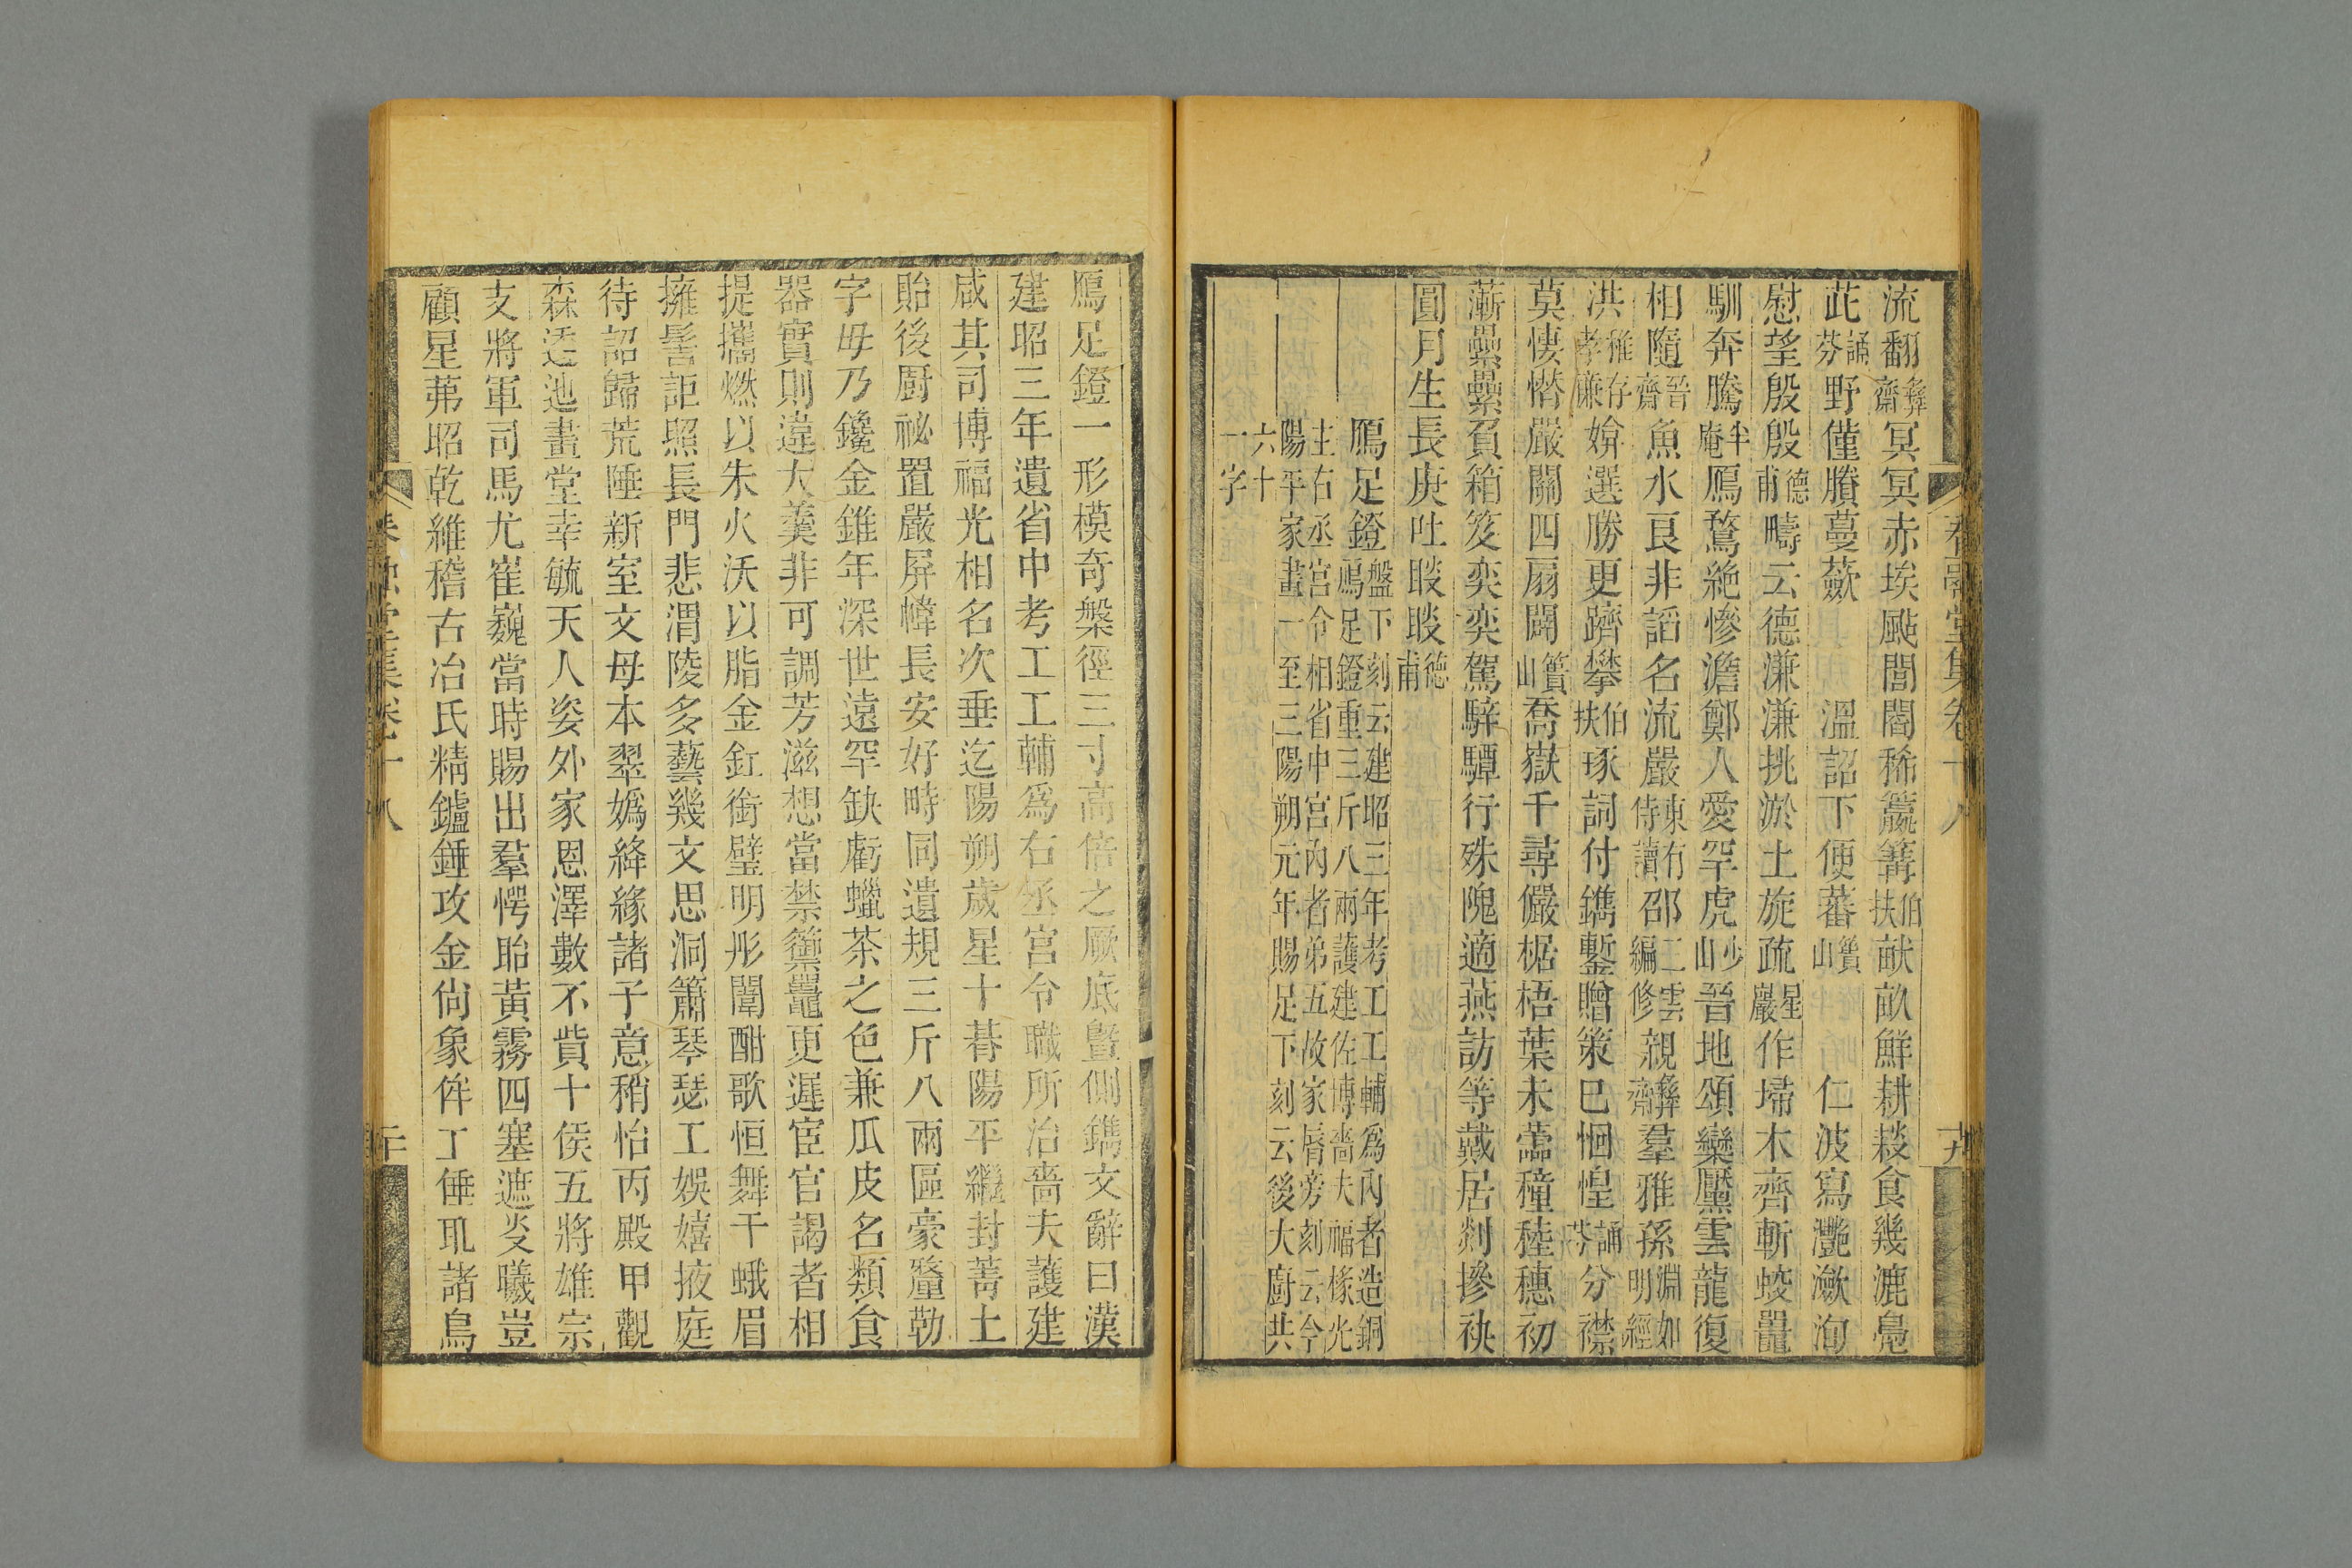 春融堂集卷十八
十九
流翻彝齋冥冥赤埃颭閭閻稀羸篝伯扶畎畝鮮耕耮食幾漉鳧
茈誦芬野僅賸蔓蘞溫詔下便蕃簣山仁波寫灩瀲洵
慰望殷殷德甫疇云德溓溓挑淤土旋疏星巖作埽木齊斬蛟鼉
馴奔騰半庵鴈鶩絶慘澹鄭人愛罕虎少山晉地頌欒黶雲龍復
相隨晉齋魚水良非謟名流嚴東侍有讀邵二雲編修親彝齋羣雅孫淵如明經
洪稚存孝廉媕選勝更躋攀伯扶琢詞付鐫鏨贈策巳恛惶誦芬分襟
莫悽憯嚴關四扇闢簣山喬嶽千尋儼椐梧葉未薷穜稑穗初
蔪纍纍負箱笈奕奕駕騂驔行殊隗適燕訪等戴居剡摻袂
圓月生長庚吐睒睒德甫
鴈足鐙盤下刻云建昭三年考工工輔爲內者造銅
鴈足鐙重三斤八兩護建佐博嗇夫福掾光
主右丞宮令相省中宮內者弟五故家脣旁刻云今
陽平家畫一至三陽朔元年賜足下刻云後大廚共
六十
一字
鴈足鐙一形模奇槃徑三寸高倍之厥底暨側鐫文辭曰漢
建昭三年遺省中考工工輔爲右丞宮令職所治嗇夫護建
咸其司博福光相名次垂迄陽朔歲星十朞陽平繼封菁土
貽後厨祕置嚴屏幃長安好時同遺規三斤八兩區豪釐勒
字毋乃鑱金錐年深世遠罕缺虧蠟茶之色兼瓜皮名類食
器實則違大羹非可調芳滋想當禁籞鼍更遲宦官謁者相
提攜燃以朱火沃以脂金釭銜璧明彤闈酣歌恒舞干蛾眉
擁髻詎照長門悲渭陵多藝幾文思洞簫琴瑟工娛嬉掖庭
待詔歸荒陲新室文母本翠嬀絳緣諸子意稍怡丙殿甲觀
森迤迆畫堂幸毓天人姿外家恩澤數不貲十侯五將雄宗
支將軍司馬尤崔巍當時賜出羣愕眙黃霧四塞遮炎曦豈
顧星茀昭乾維稽古冶氏精鑪錘攻金尙象侔工倕耴諸鳥
春融堂集卷十八
二十